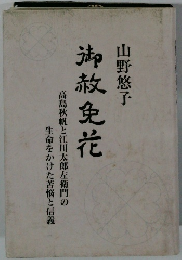 山野悠子
御赦免花
高島秋帆と江川太郎左衛門の
生命をかけた苦悩と信義